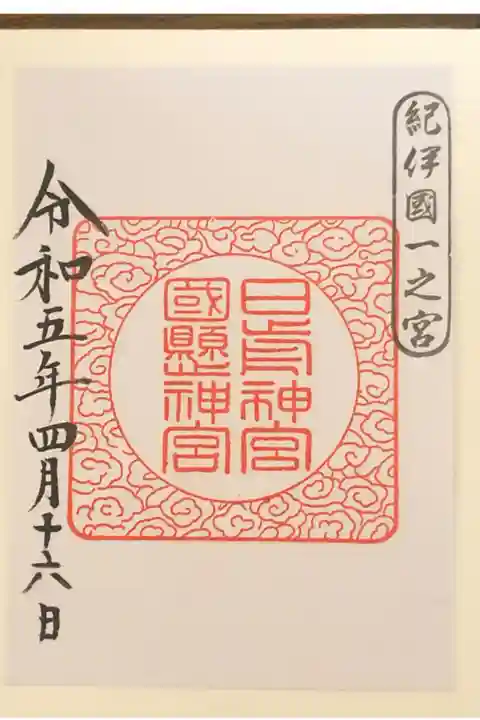 紀伊國一之宮
日前神宮
國懸神宮
令和五年四月十六日